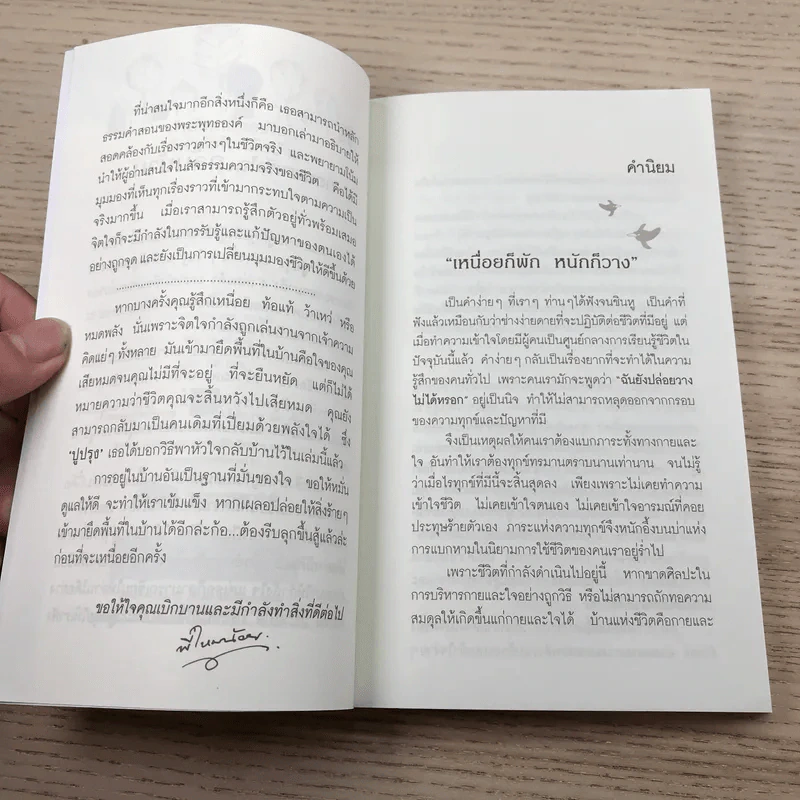 ที่น่าสนใจมากอีกสิ่งหนึ่งก็คือ เธอสามารถนำหลัก
ธรรมคำสอนของพระพุทธองค์ มาบอกเล่ามาอธิบายให้
สอดคล้องกับเรื่องราวต่างๆในชีวิตจริง และพยายามโน้ม
นำให้ผู้อ่านสนใจในสัจธรรมความจริงของชีวิต คือได้มี
มุมมองที่เห็นทุกเรื่องราวที่เข้ามากระทบใจตามความเป็น
จริงมากขึ้น เมื่อเราสามารถรู้สึกตัวอยู่ทั่วพร้อมเสมอ
จิตใจก็จะมีกำลังในการรับรู้และแก้ปัญหาของตนเองได้
อย่างถูกจุด และยังเป็นการเปลี่ยนมุมมองชีวิตให้ดีขึ้นด้วย
หากบางครั้งคุณรู้สึกเหนื่อย ท้อแท้ ว้าเหว่ หรือ
หมดพลัง นั่นเพราะจิตใจกำลังถูกเล่นงานจากเจ้าความ
คิดแย่ๆ ทั้งหลาย มันเข้ามายึดพื้นที่ในบ้านคือใจของคุณ
เสียหมดจนคุณไม่มีที่จะอยู่ ที่จะยืนหยัด แต่ก็ไม่ได้
หมายความว่าชีวิตคุณจะสิ้นหวังไปเสียหมด คุณยัง
สามารถกลับมาเป็นคนเดิมที่เปี่ยมด้วยพลังใจได้ ซึ่ง
'ปูปรุง' เธอได้บอกวิธีพาหัวใจกลับบ้านไว้ในเล่มนี้แล้ว
การอยู่ในบ้านอันเป็นฐานที่มั่นของใจ ขอให้หมั่น
ดูแลให้ดี จะทำให้เราเข้มแข็ง หากเผลอปล่อยให้สิ่งร้ายๆ
เข้ามายึดพื้นที่ในบ้านได้อีกล่ะก้อ...ต้องรีบลุกขึ้นสู้แล้วล่ะ
ก่อนที่จะเหนื่อยอีกครั้ง
ขอให้ใจคุณเบิกบานและมีกำลังทำสิ่งที่ดีต่อไป
คำนิยม
“เหนื่อยก็พัก หนักก็วาง”
เป็นคำง่ายๆ ที่เราๆ ท่านๆ ได้ฟังจนชินหู เป็นคำที่
ฟังแล้วเหมือนกับว่าช่างง่ายดายที่จะปฏิบัติต่อชีวิตที่มีอยู่ แต่
เมื่อทำความเข้าใจโดยมีผู้คนเป็นศูนย์กลางการเรียนรู้ชีวิตใน
ปัจจุบันนี้แล้ว คำง่ายๆ กลับเป็นเรื่องยากที่จะทำได้ในความ
รู้สึกของคนทั่วไป เพราะคนเรามักจะพูดว่า "ฉันยังปล่อยวาง
ไม่ได้หรอก" อยู่เป็นนิจ ทำให้ไม่สามารถหลุดออกจากกรอบ
ของความทุกข์และปัญหาที่มี
จึงเป็นเหตุผลให้คนเราต้องแบกภาระทั้งทางกายและ
ใจ อันทำให้เราต้องทุกข์ทรมานตราบนานเท่านาน จนไม่รู้
ว่าเมื่อไรทุกข์ที่มีนี้จะสิ้นสุดลง เพียงเพราะไม่เคยทำความ
เข้าใจชีวิต ไม่เคยเข้าใจตนเอง ไม่เคยเข้าใจอารมณ์ที่คอย
ประทุษร้ายตัวเอง ภาระแห่งความทุกข์จึงหนักอึ้งบนบ่าแห่ง
การแบกหามในนิยามการใช้ชีวิตของคนเราอยู่ร่ำไป
เพราะชีวิตที่กำลังดำเนินไปอยู่นี้ หากขาดศิลปะใน
การบริหารกายและใจอย่างถูกวิธี หรือไม่สามารถถักทอความ
สมดุลให้เกิดขึ้นแก่กายและใจได้ บ้านแห่งชีวิตคือกายและ